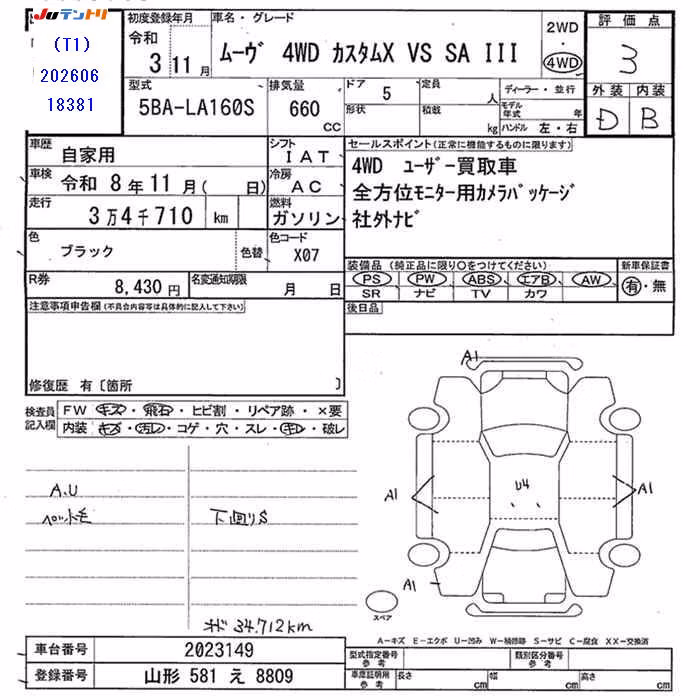 JUテントリ
(T1)
202606
18381
初度登録年月
令和
3年11月
車名・グレード
ムーヴ 4WD カスタムX VS SA III
2WD
・
4WD
評価点
3
外装 内装
D B
型式
5BA-LA160S
排気量
660
CC
ドア
5
形状
定員
人
積載
kg
ディーラー・並行
モデル年式 年
ハンドル 左・右
車歴
自家用
シフト
IAT
車検
令和 8年11月( 日)
冷房
AC
走行
3万4千710 km
燃料
ガソリン
色
ブラック
色替
色コード
X07
R券
8,430円
名変通知期限
月 日
セールスポイント(正常に機能するものに限ります)
4WD ユーザー買取車
全方位モニター用カメラパッケージ
社外ナビ
装備品(純正品に限り○をつけてください)
PS PW ABS エアB AW
SR ナビ TV カワ
新車保証書
有・無
後日品
注意事項申告欄(不具合内容等は具体的に記入して下さい)
修復歴 有〔箇所 〕
検査員記入欄
FW キズ・飛石・ヒビ割・リペア跡・×要
内装 キズ・汚レ・コゲ・穴・スレ・キレ・破レ
A.U
ペット毛
下回りS
オド 34,712km
A1
A1
U4
A1
A1
スペア
A-キズ E-エクボ U-凹み W-補修跡 S-サビ C-腐食 XX-交換済
車台番号
2023149
登録番号
山形 581 え 8809
型式指定番号
参考
類別区分番号
参考
車庫証明用
参考
長さ cm
幅 cm
高さ cm